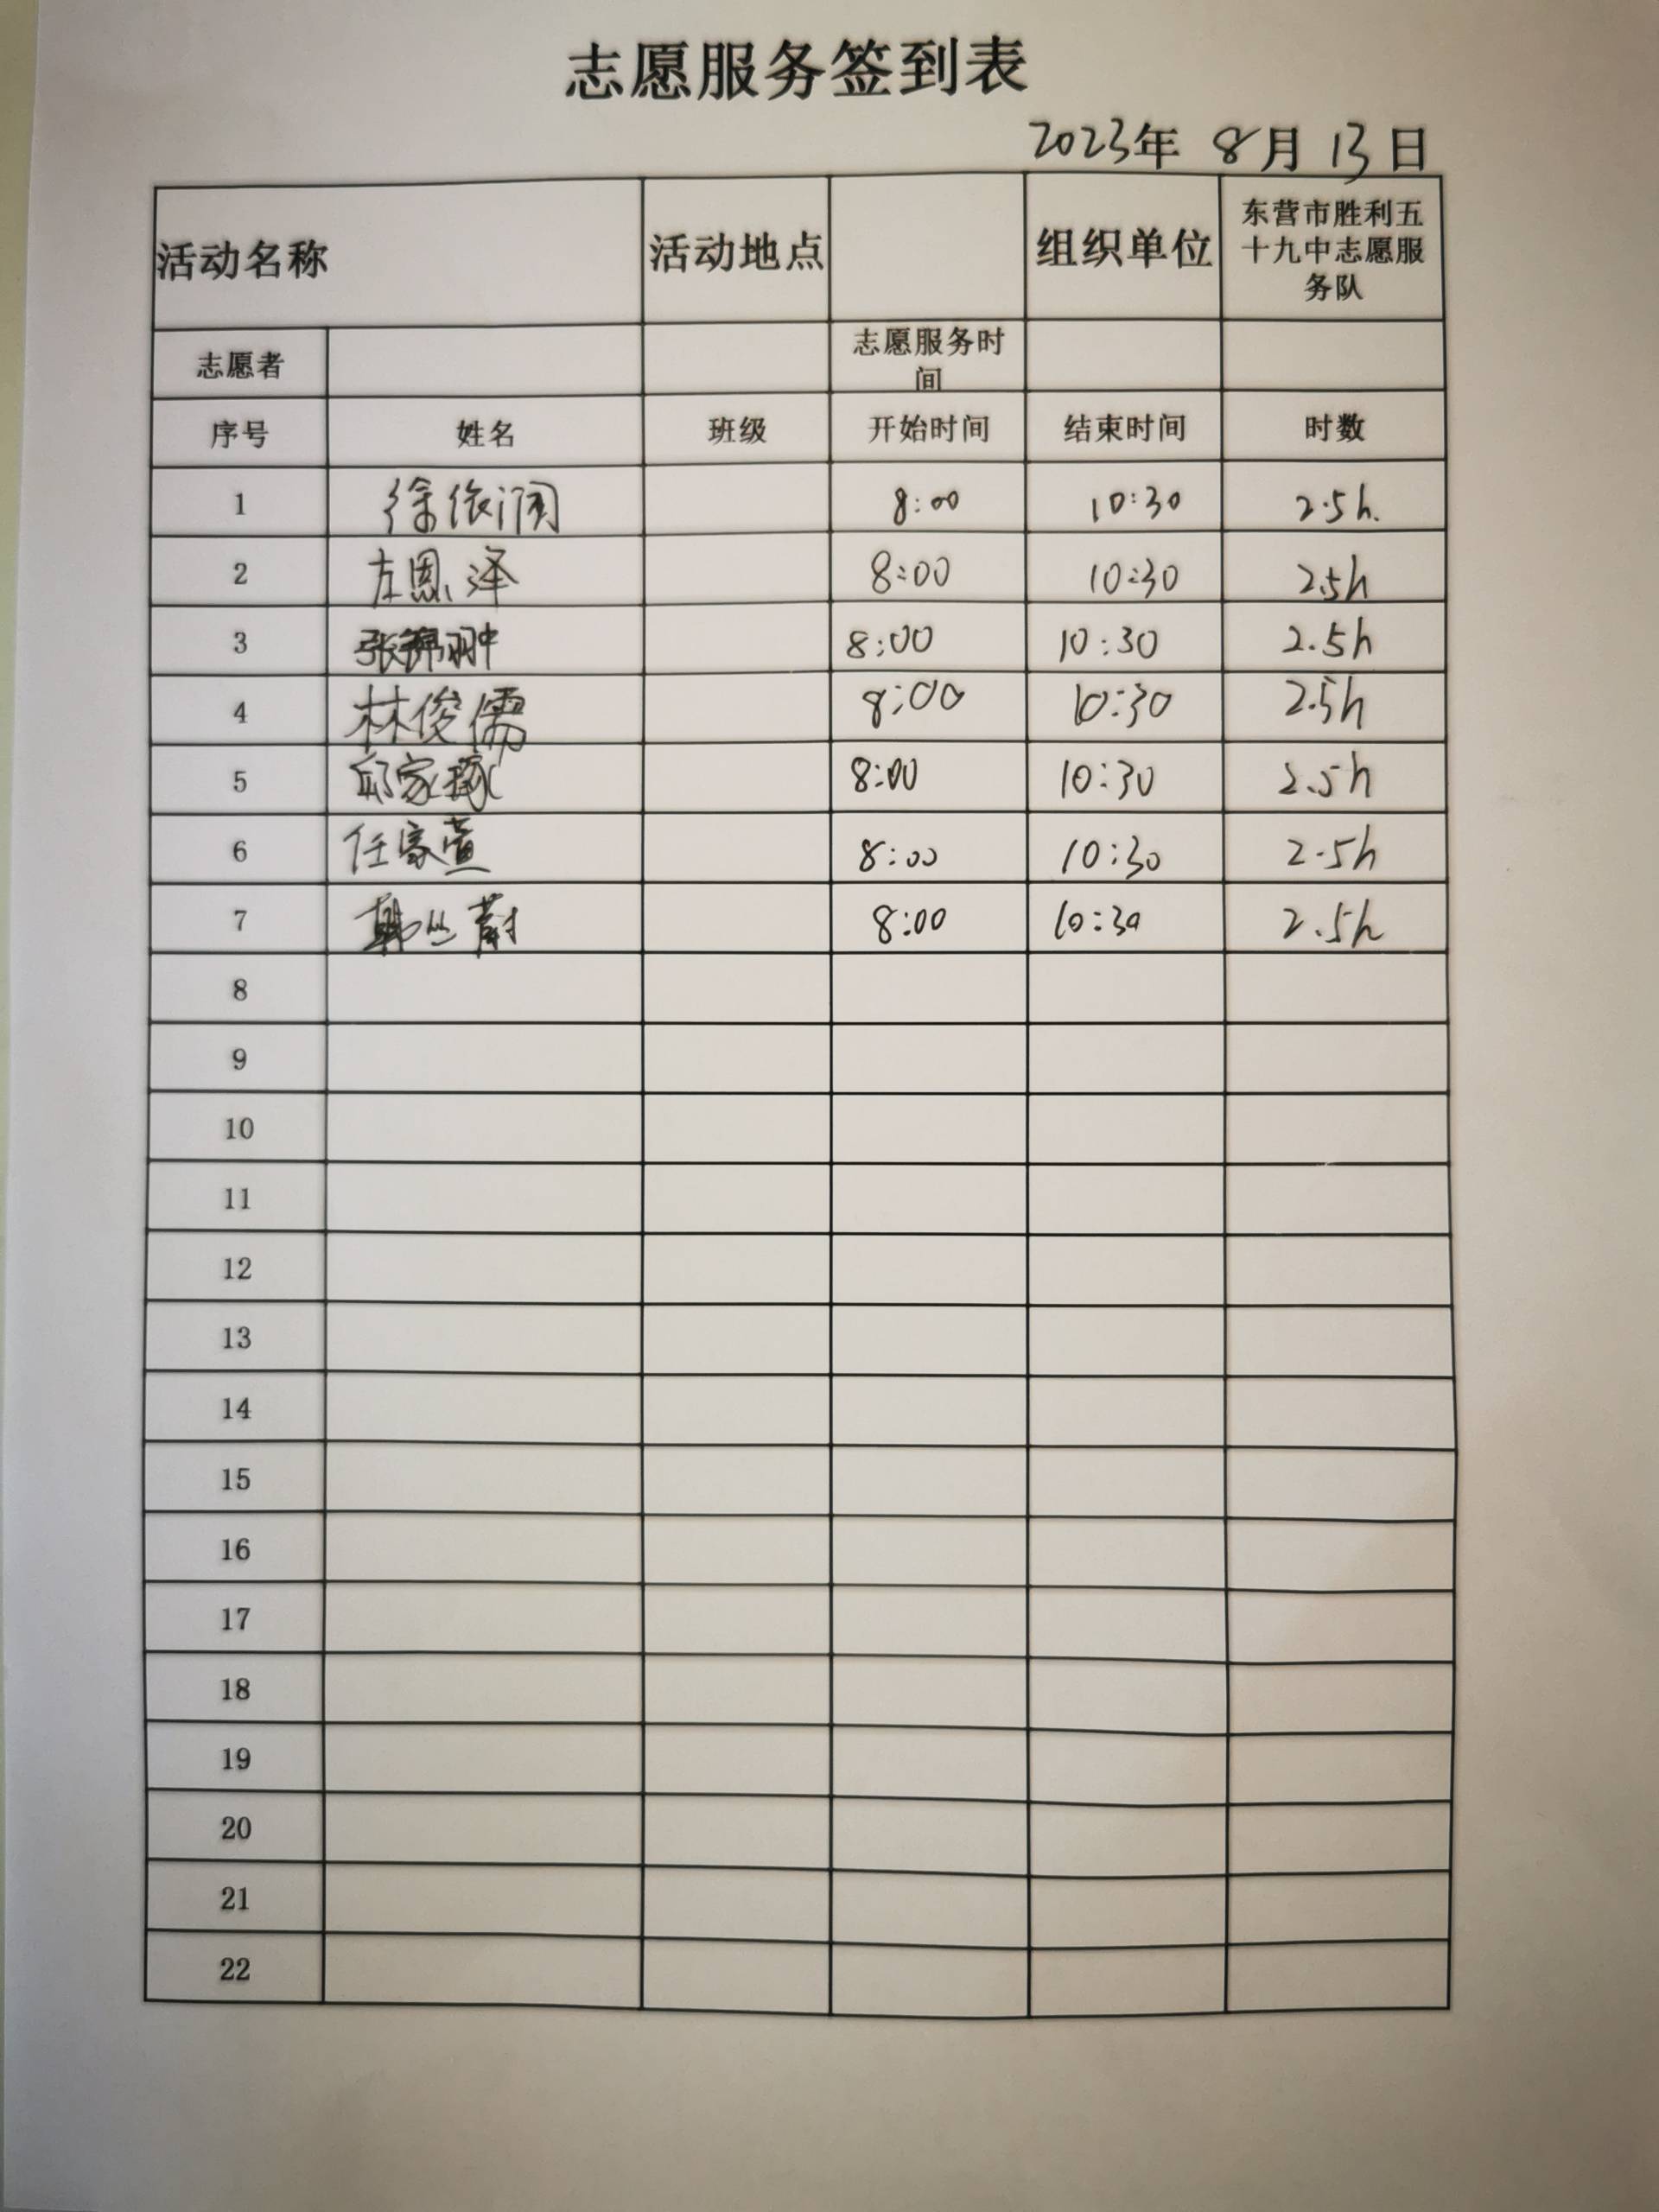 志愿服务签到表
2023年 8月 13日
活动名称 活动地点 组织单位 东营市胜利五
十九中志愿服
务队
志愿者 志愿服务时
间
序号 姓名 班级 开始时间 结束时间 时数
1 徐依润 8:00 10:30 2.5h.
2 左恩泽 8:00 10:30 2.5h
3 张锦翀 8:00 10:30 2.5h
4 林俊儒 8:00 10:30 2.5h
5 邱家 8:00 10:30 2.5h
6 任家萱 8:00 10:30 2.5h
7 韩丛蔚 8:00 10:30 2.5h
8
9
10
11
12
13
14
15
16
17
18
19
20
21
22